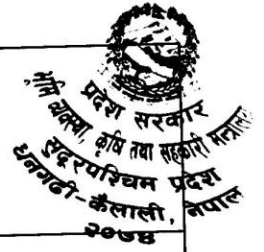 प्रदेश सरकार
भूमि व्यवस्था, कृषि तथा सहकारी मन्त्रालय
सुदूरपश्चिम प्रदेश
धनगढी-कैलाली, नेपाल
२०७४